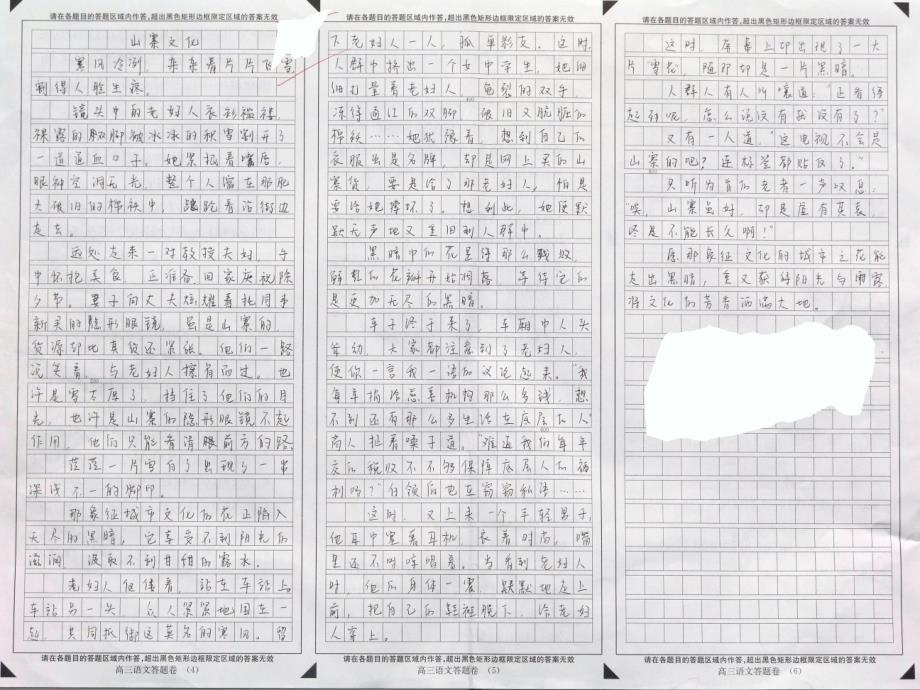 请在各题目的答题区域内作答,超出黑色矩形边框限定区域的答案无效
山寨文化
寒风冷冽，夹杂着片片飞雪，
割得人脸生疼。
镜头中的老妇人衣衫褴褛，
裸露的双脚被冰冰的积雪割开了
一道道血口子。她紧抿着嘴唇，
眼神空洞无光，整个人窝在那肥
大破旧的棉袄中，蹒跚着沿街边
走去。
远处走来一对教授夫妇，手
中怀抱美食，正准备回家庆祝除
夕节。妻子向丈夫炫耀着托同事
新买的隐形眼镜，虽是山寨的，
货源却比真货还紧张。他们一路
说笑着，与老妇人擦肩而过。也
许是雪太厚了，挡住了他们的目
光，也许是山寨的隐形眼镜不起
作用，他们只能看清眼前方的路。
茫茫一片雪白了出现了一串
深浅不一的脚印。
那象征城市文化的花正陷入
无尽的黑暗，它享受不到阳光的
滋润，汲取不到甘甜的露水。
老妇人佝偻着，站在车站上。
车站另一头，众人紧紧地围在一
起，共同抵御这莫名的寒风。留
请在各题目的答题区域内作答,超出黑色矩形边框限定区域的答案无效
高三语文答题卷 (4)
请在各题目的答题区域内作答,超出黑色矩形边框限定区域的答案无效
下老妇人一人，孤单影支。这时，
人群中挤出一个女中学生，她细
细打量着老妇人，龟裂的双手，
冻得通红的双脚，依旧又脏脏的
棉袄……她犹豫着，想到自己的
衣服虽是名牌，却是网上买的山
寨货，要是给了那老妇人，怕是
要给她撑坏了。想到此，她便默
默无声地又重回到人群中。
黑暗中的花显得那么残败，
弱的花瓣开始凋落，等待它的
是更加无尽的黑暗。
车子终于来了，车厢中人头
耸动，大家都注意到了老妇人，
便你一言我一语的议论起来。“我
每年捐给慈善机构那么多钱，想
不到还有那么多生活在底层的人”
商人扯着嗓子道。“难道我们年年
交的税收不不够保障底层人的福
利吗？”白领们也在窃窃私语……
这时，又上来一个年轻男子，
他耳中塞着耳机，衣着时尚，嘴
里还不时哼唱着。当看到老妇人
时，他的身体一震，默默地走上
前，把自己的鞋袜脱下，给老妇
人穿上。
请在各题目的答题区域内作答,超出黑色矩形边框限定区域的答案无效
高三语文答题卷 (5)
请在各题目的答题区域内作答,超出黑色矩形边框限定区域的答案无效
这时，屏幕上却出现了一大
片“雪花”，随即却是一片黑暗。
人群人有人叫嚷道：“正看得
起劲呢，怎么说没有就没有了？”
又有一人道：“这电视不会是
山寨的吧？还标签都贴反了。”
只听为首的老者一声叹息，
“唉，山寨虽好，却是虚有其表，
终是不能长久啊！”
愿那象征文化的城市之花能
走出黑暗，重又获得阳光与雨露，
将文化的芳香洒满大地。
请在各题目的答题区域内作答,超出黑色矩形边框限定区域的答案无效
高三语文答题卷 (6)